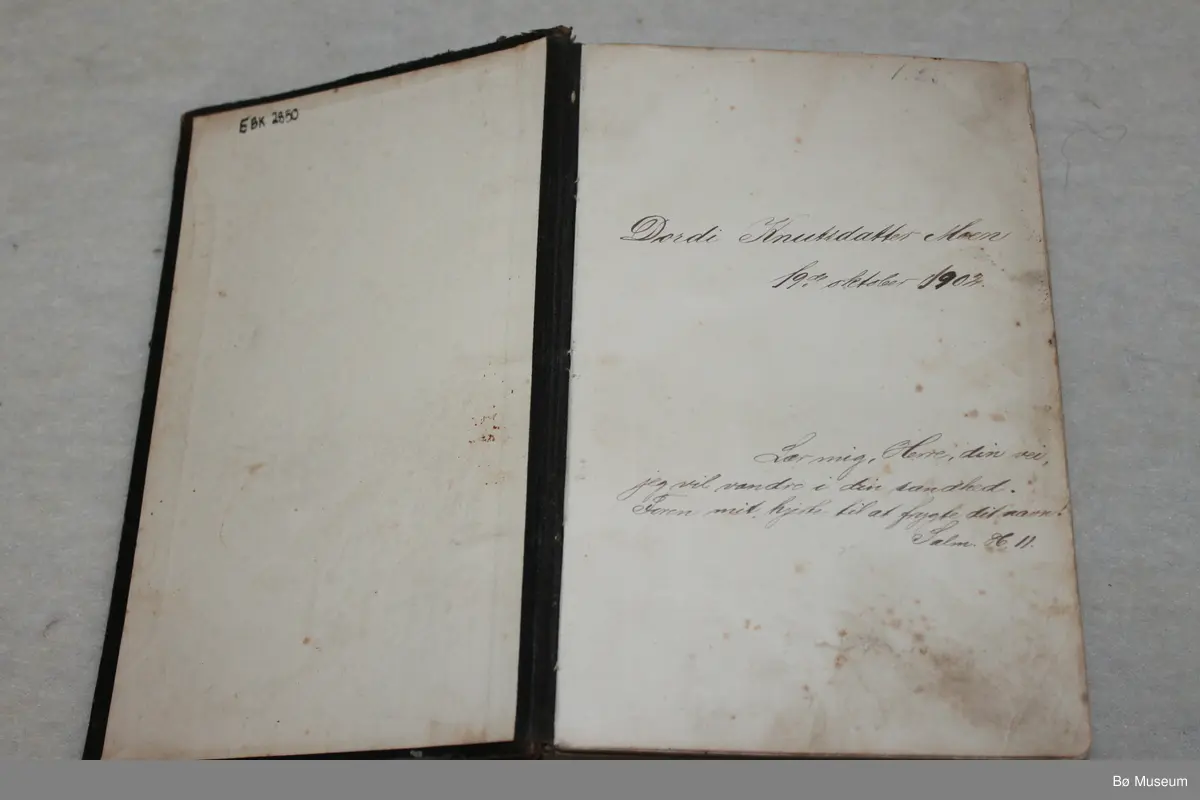 EBK 2880
1.2.
Dordi Knutsdatter Moen
19de oktober 1902.
Lær mig, Herre, din vei,
jeg vil vandre i din sandhed.
Foren mit hjerte til at frygte dit navn!
Salm. 11.
Bø Museum